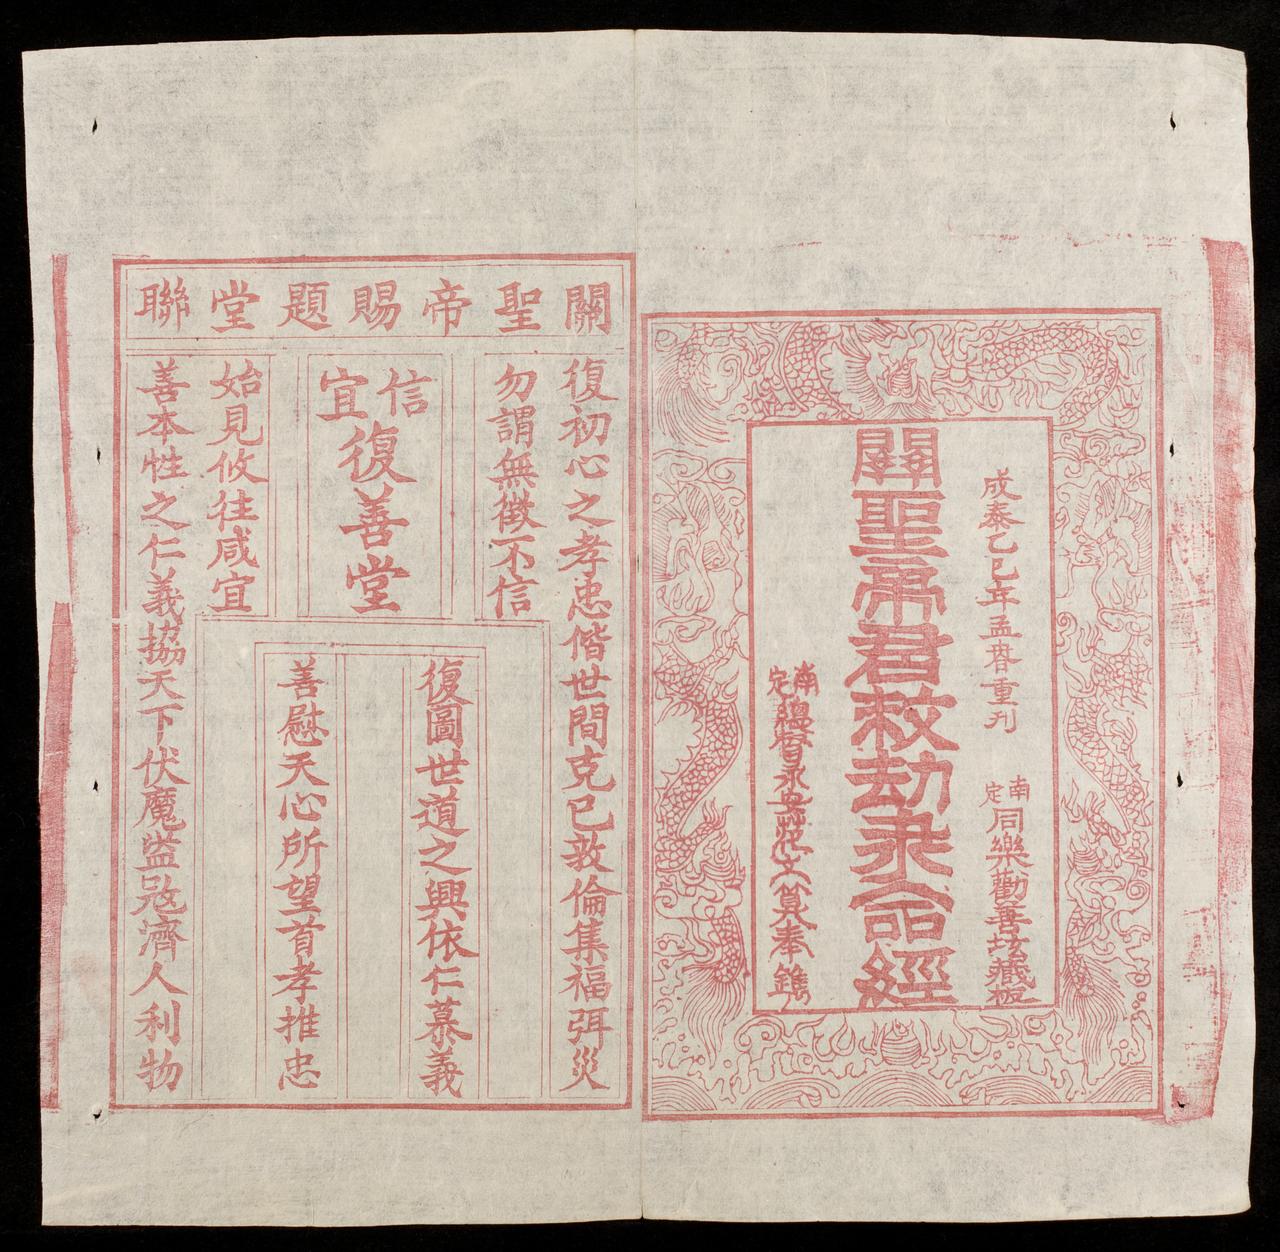 成泰乙巳年孟春重刊
南定同樂勸善坛藏板
關聖帝君救劫永命經
關聖帝賜題堂聯
復初心之孝忠偕世間克己敦倫集福弭災
勿謂無徵不信
信宜
復善堂
始見攸往咸宜
善本性之仁義協天下伏魔盪寇濟人利物
復圖世道之興依仁慕義
善慰天心所望首孝推忠